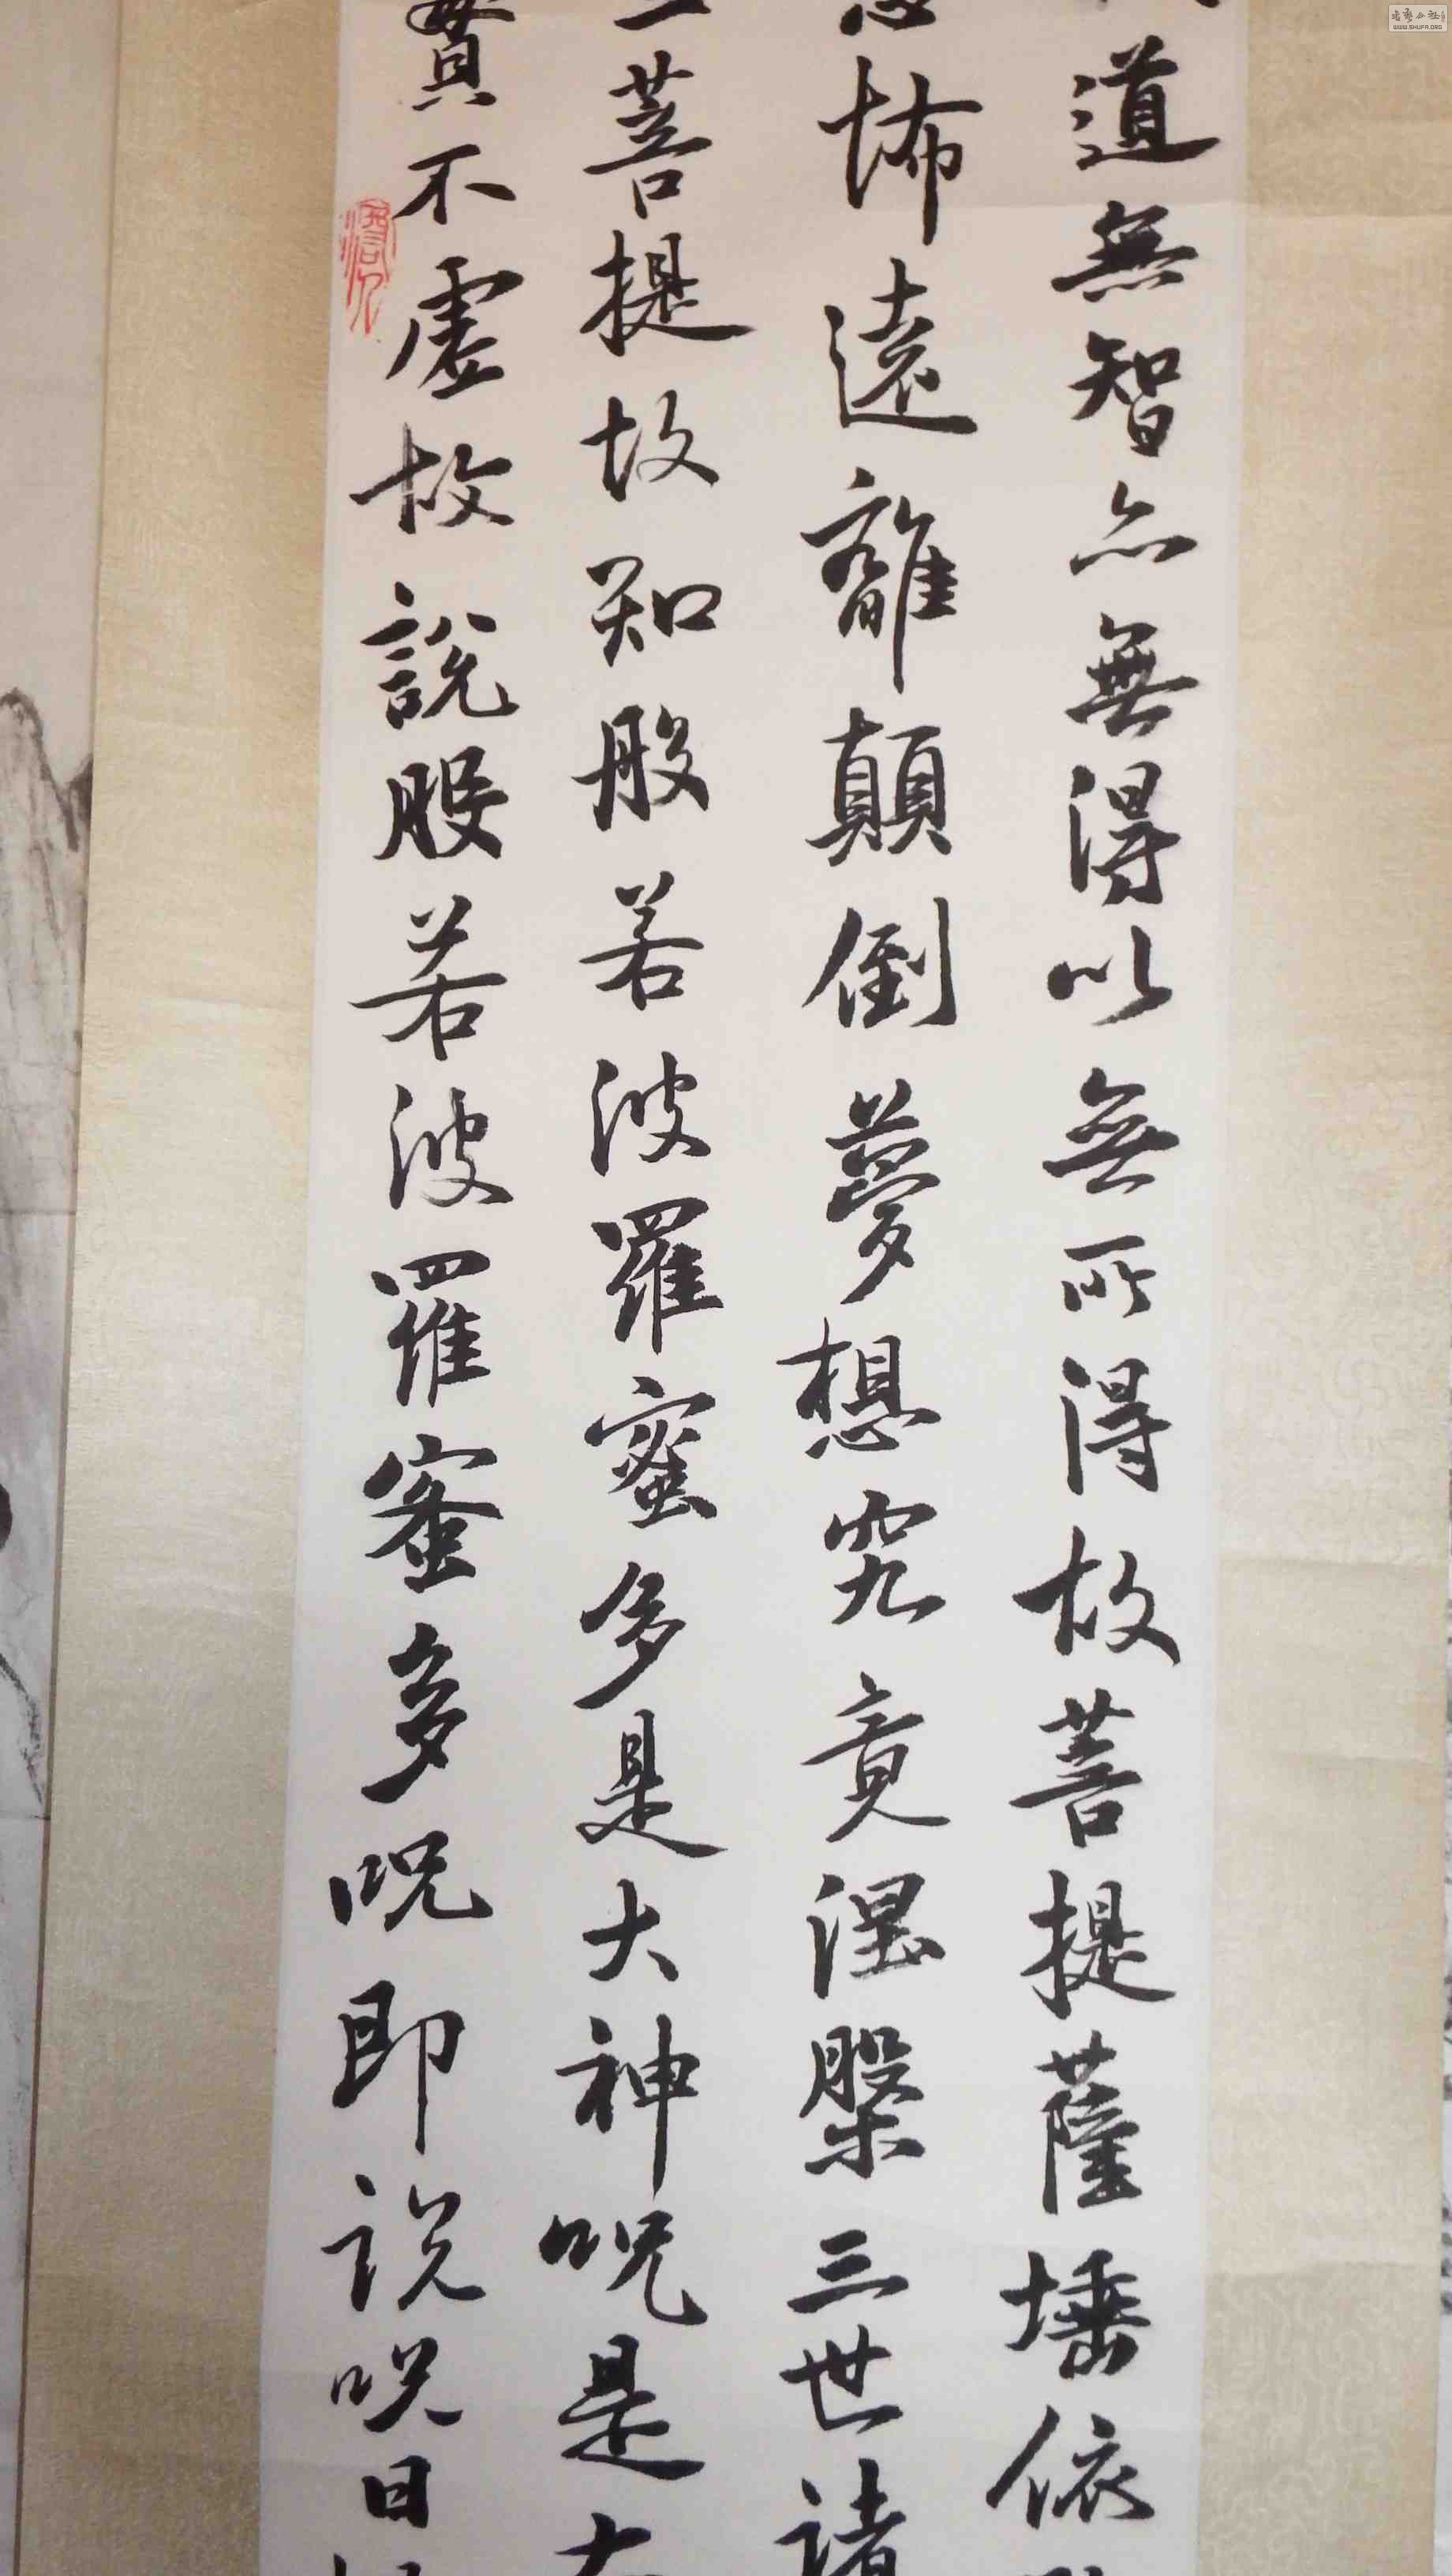 道無智亦無得以無所得故菩提薩埵依
恐怖遠離顛倒夢想究竟涅槃三世諸
三菩提故知般若波羅蜜多是大神呪是大
實不虛故說般若波羅蜜多呪即說呪曰
WWW.SHUFA.ORG